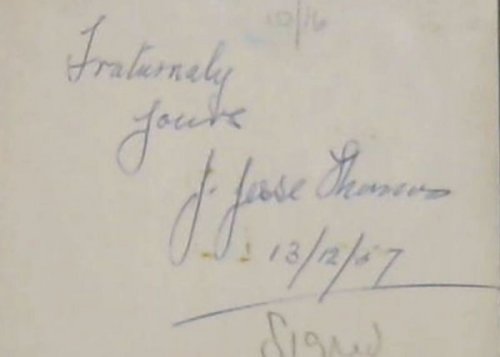 10/16
Fraturnaly
yours
J. Jesse Thomas
13/12/57
Signed